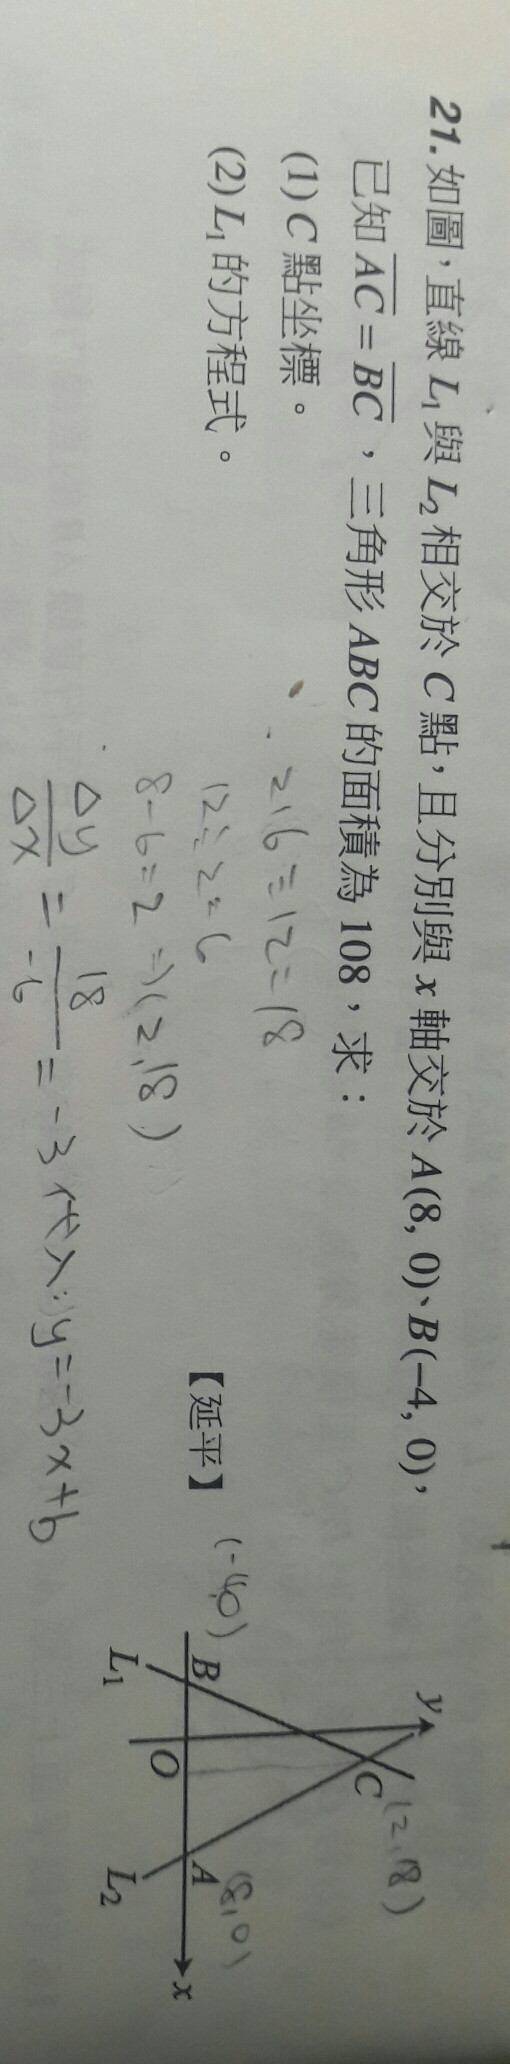 21.如圖，直線 L₁ 與 L₂ 相交於 C 點，且分別與 x 軸交於 A(8, 0)、B(–4, 0)，
已知 AC = BC，三角形 ABC 的面積為 108，求：
(1) C 點坐標。
(2) L₁ 的方程式。
【延平】
216÷12=18
12÷2=6
8-6=2 ⇒(2,18)
Δy/Δx = 18/-6 = -3 代入:y=-3x+b
y
C (2,18)
(-4,0)
B
O
A
(8,0)
x
L₁
L₂